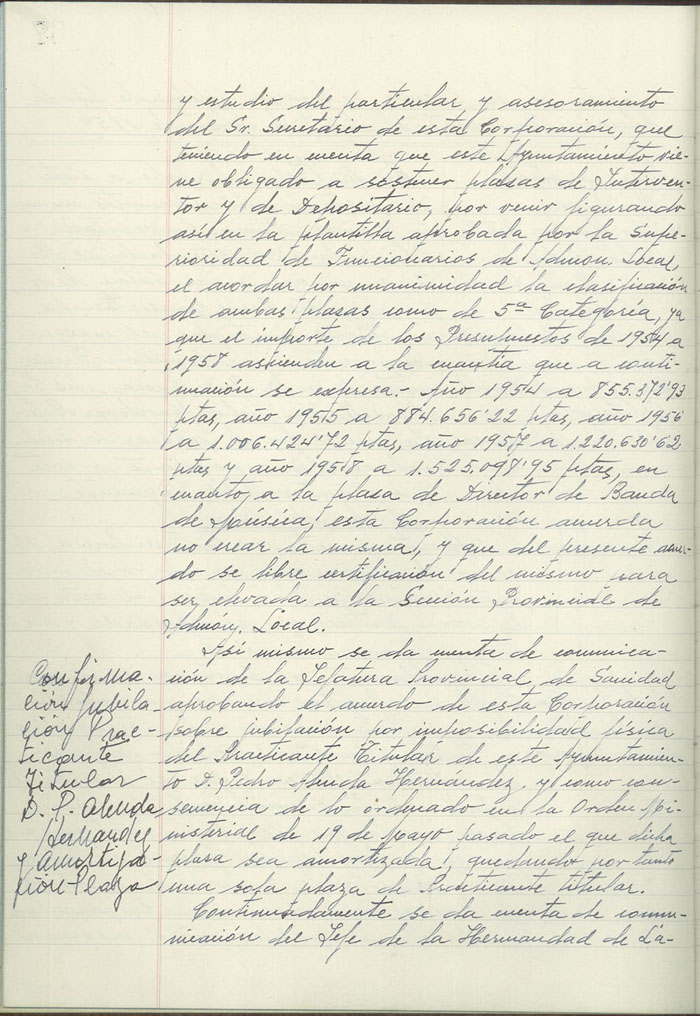 y estudio del particular y asesoramiento
del Sr. Secretário de esta Corporación, que
teniendo en cuenta que este Ayuntamiento vie-
ne obligado a sostener plazas de Interven-
tor y de Depositario, por venir figurando
así en la plantilla aprobada por la Supe-
rioridad de Funcionarios de Admon. Local,
el acordar por unanimidad la clasificación
de ambas plazas como de 5ª Categoría, ya
que el importe de los Presupuestos de 1954 a
1958 ascienden a la cuantía que a conti-
nuación se expresa.- Año 1954 a 855.372'93
ptas, año 1955 a 884.656'22 ptas, año 1956
a 1.006.424'72 ptas, año 1957 a 1.220.630'62
ptas y año 1958 a 1.525.098'95 ptas, en
cuanto a la plaza de Director de Banda
de Música, esta Corporación acuerda
no crear la misma, y que del presente acuer-
do se libre certificación del mismo para
ser elevada a la Sección Provincial de
Admón. Local.
Así mismo se da cuenta de comunica-
ción de la Jefatura Provincial de Sanidad
aprobando el acuerdo de esta Corporación
sobre jubilación por imposibilidad física
del Practicante Titular de este Ayuntamien-
to D. Pedro Hernández, y como con-
secuencia de lo ordenado en la Orden Mi-
nisterial de 19 de Mayo pasado el que dicha
plaza sea amortizada, quedando por tanto
una sola plaza de Practicante titular.
Continuadamente se da cuenta de comu-
nicación del Jefe de la Hermandad de La-
Confirma-
ción Jubila-
ción Prac-
ticante
Titular
D. P.
Hernandez
y Amortiza-
ción Plaza